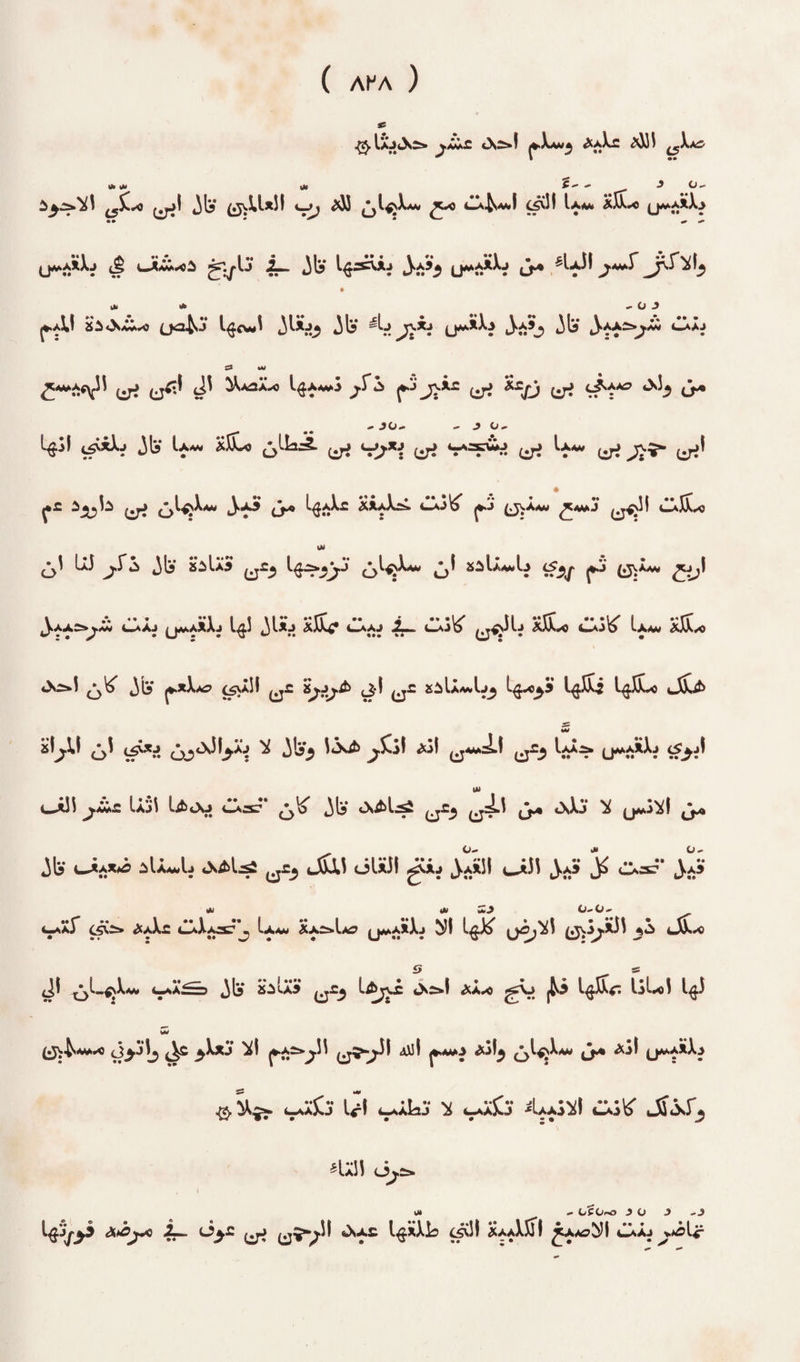 ( ٨٣٨ )
صلي الله عليه وسلم احد عشر حديثا ۞
بلقيس ملكة سبا التي اسلمت مع سليمان لله رب العالمين قال ابن مكي الاجود
والاكثر كسر الباء من بلقيس وقيل بفتحها قال في تاريخ دمشق هي بلقيس
بنت شرحبيل قال وقيل بلقس بغير ياء قال ويقال اسمها تلمص مشددة الميم
من ولد صيفي بن زرعة بن عفير ثم ذكر نسبها متصلا الي ايمن بن الهميسع
ابن حمير بن سبا بن يشجب بن يعرب بن قحطان ملكة سبا قال بلغني انها
ملكت اليمن تسع سنين ثم كانت خليفة عليها من قبل سليمان بن داوود عم
اربع سنين ثم روي باسناده ان سليمان تزوجها وعن قتادة قال ذكر لنا ان
ملكة سبا كانت ملكة باليمن كانت في بيت مملكة يقال لها بلقيس بنت شرحبيل
هلك ملكها فملكها قومها وباسناده عن ابي هريرة عن النبي صلعم قال كان احد
ابوي بلقيس جنيا وعن الحسن انه انكر هذا وقال لا يتوالدون يعني ان المراة
من الانس لا تلد من الجن وعن مجاهد قال كان تحت يدها اثنا عشر الف
قيل تحت كل قيل الف القيل بفتح القاف الملك وعن مجاهد باسناد ضعيف قال
ملك ذو القرنين الارض كلها الا بلقيس صاحبة سبا وتحيلت عليه حتي كتب
لها امانا بمملكتها فلم ينج منه احد غيرها وعن قتادة قال كتب سليمان الي
بلقيس انه من سليمان وانه بسم الله الرحمن الرحيم الا تعلو علي واتوني مسلمين
وكذلك كانت الانبياء تكتب لا تطنب انما تكتب جملا ۞
حرف التاء
تماضر بنت الاصبغ الكلبية التي طلقها عبد الرحمن بن عوف في مرضه فورثها